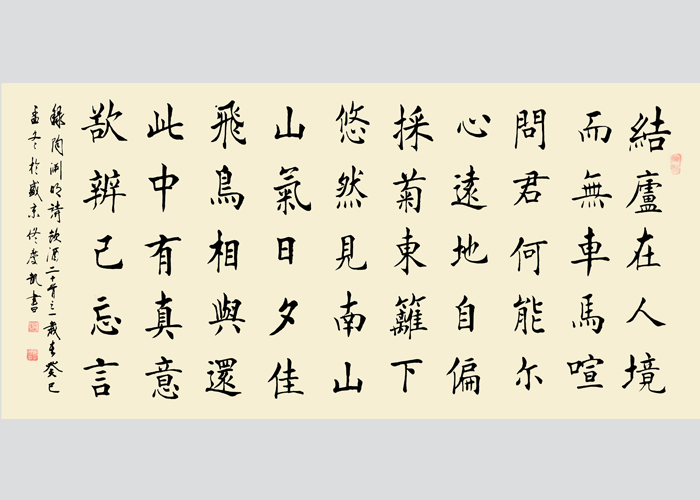 結廬在人境
而無車馬喧
問君何能尔
心遠地自偏
採菊東籬下
悠然見南山
山氣日夕佳
飛鳥相與還
此中有真意
欲辨已忘言
錄陶淵明詩飲酒二十首之一歲在癸巳
孟冬於盛京佟書